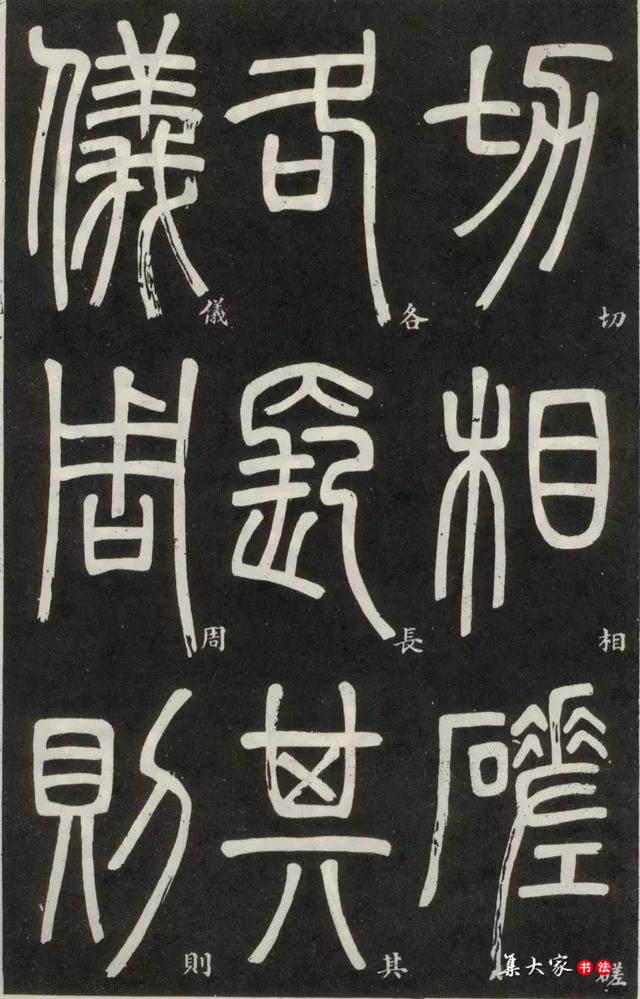 切相磋
切相磋
各長其
各長其
儀周則
儀周則
集大家书法